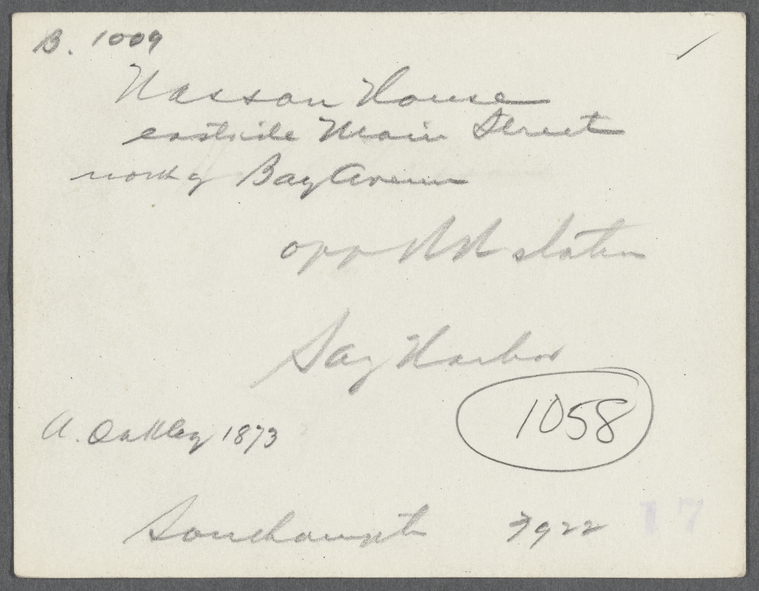 B. 1009
Nassau House
eastside Main Street
north of Bay Avenue
opp RR station
Sag Harbor
1058
A. Oakley 1873
Southampton 1922
17